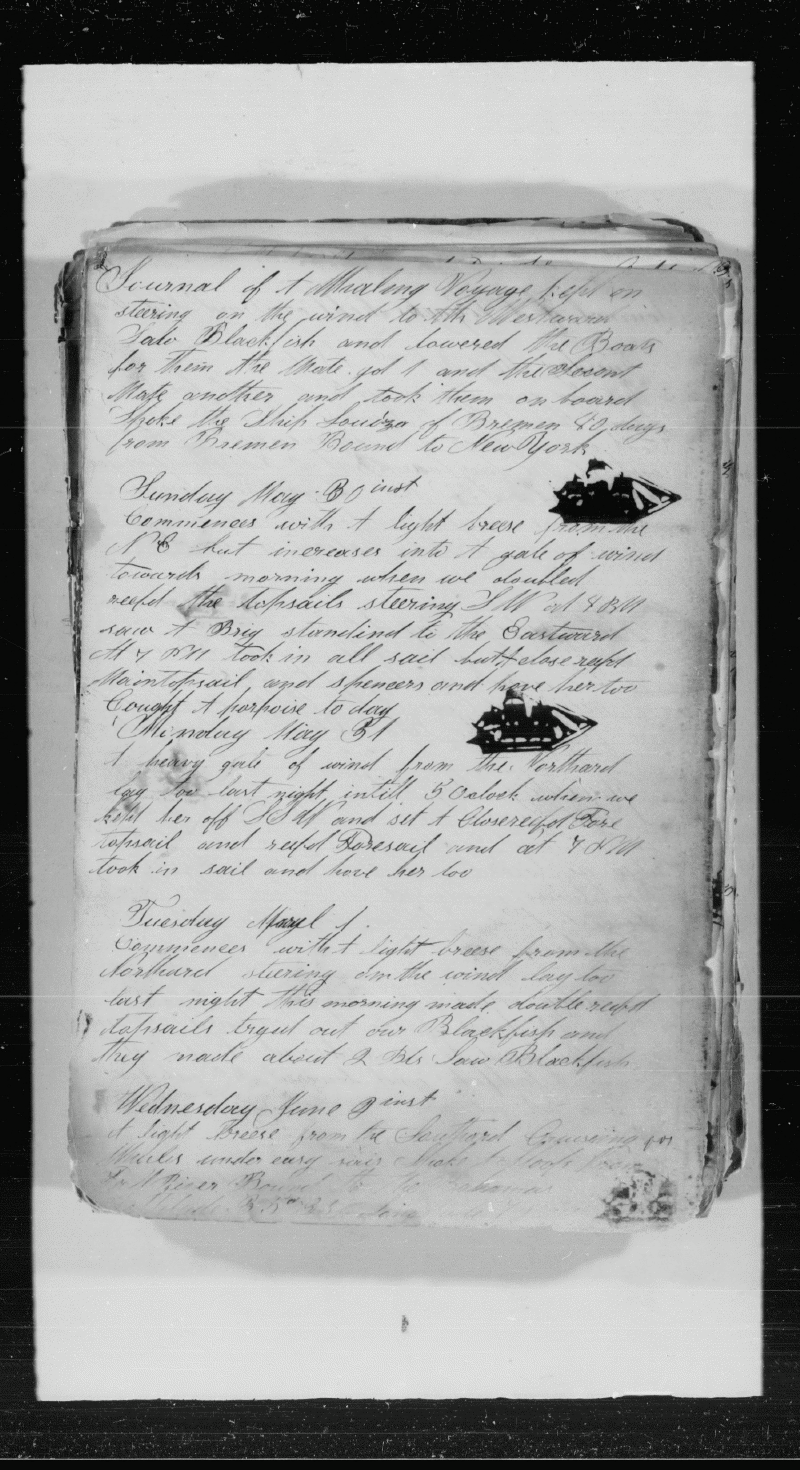 Journal of A Whaling Voyage kept on
steering on the wind to th Westward
Saw Blackfish and lowered the Boats
for them the Mate got 1 and the Secont
Mate another and took them on board
Spoke the Ship Louiza of Bremen 40 days
from Bremen Bound to New York
Sunday May 30 inst
Commences with A light breese from the
N E but increases into A gale of wind
towards morning when we doubled
reefd the topsails steering S W at 4 PM
saw A Brig standind to the Eastward
At 7 PM took in all sail but A close reefd
Maintopsail and spencers and hove her too
Cought A porpoise to day
Monday May 31
A heavy gale of wind from the Northard
lay too last night intill 5 Oclock when we
kept her off S S W and set A Closereefd Fore
topsail and reefd Foresail and at 7 PM
took in sail and hove her too
Tuesday 1
Commences with A light breese from the
Northard steering on the wind lay too
last night this morning made double reefd
topsails tryed out our Blackfish and
they made about 2 Bls Saw Blackfish
Wednesday June 2 inst
A light breese from the Southard Cruising for
Whales under easy sail Spoke A from
River Bound to